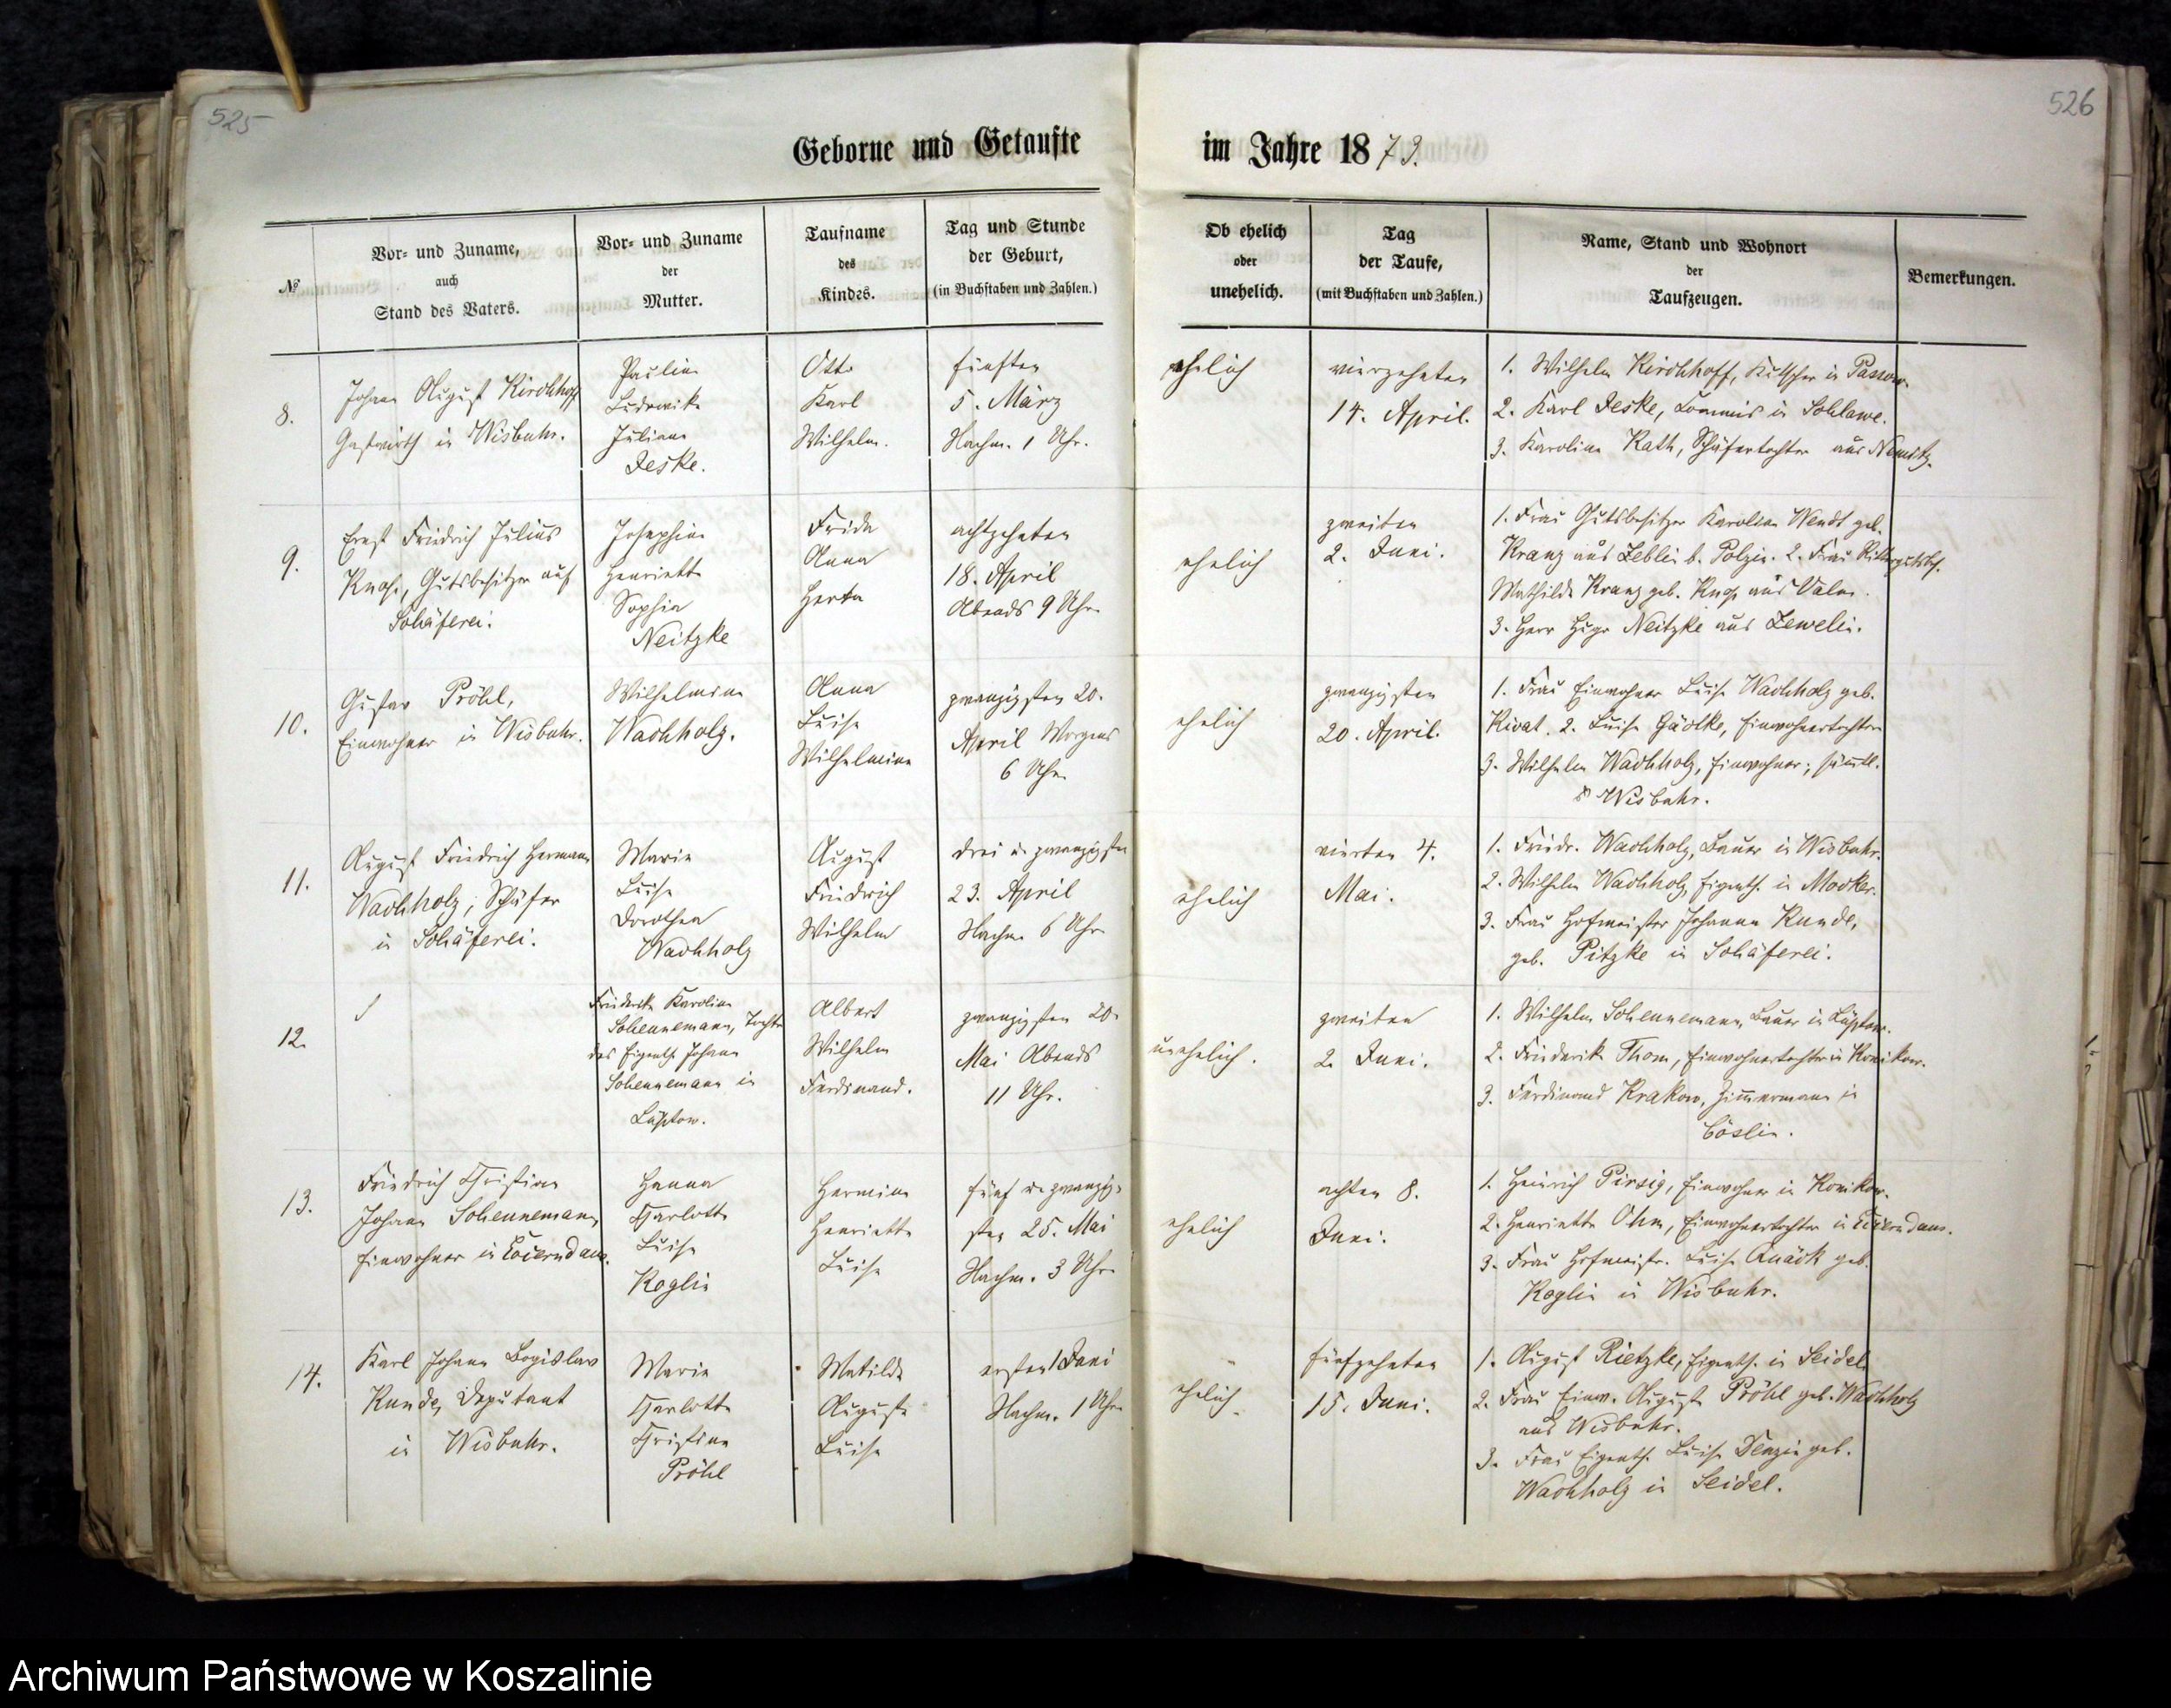 525
526
Geborne und Getaufte
im Jahre 1873.
№
Vor- und Zuname,
auch
Stand des Vaters.
Vor- und Zuname
der
Mutter.
Taufname
des
Kindes.
Tag und Stunde
der Geburt,
(in Buchstaben und Zahlen.)
Ob ehelich
oder
unehelich.
Tag
der Taufe,
(mit Buchstaben und Zahlen.)
Name, Stand und Wohnort
der
Taufzeugen.
Bemerkungen.
8.
Johann August Kirchhoff
Gastwirth in Wisbuhr.
Pauline
Ludowike
Juliane
Jeske.
Otto
Karl
Wilhelm.
fünften
5. März
Nachm. 1 Uhr.
ehelich
vierzehnten
14. April.
1. Wilhelm Kirchhoff, Kutscher in
2. Karl Jeske, Commis in Schlawe.
3. Karoline Rath, Schäfertochter aus Nemitz.
9.
Ernst Friedrich Julius
Knop, Gutsbesitzer auf
Schäferei.
Josephine
Henriette
Sophie
Neitzke
Frida
Anna
Herta
achtzehnten
18. April
Abends 9 Uhr
ehelich
zweiten
2. Juni.
1. Frau Gutsbesitzer Karoline Wendt geb.
Kranz aus Zeblin b. Polzin. 2. Frau Rittergutsbes.
Mathilde Kranz geb. Knop aus
3. Herr Hugo Neitzke aus Zewelin.
10.
Gustav Pröhl,
Einwohner in Wisbuhr.
Wilhelmine
Wachholz.
Anna
Luise
Wilhelmine
zwanzigsten 20.
April Morgens
6 Uhr
ehelich
zwanzigsten
20. April.
1. Frau Einwohner Luise Wachholz geb.
2. Luise Gädtke, Einwohnertochter
3. Wilhelm Wachholz, Einwohner; sämtl.
Wisbuhr.
11.
August Friedrich Hermann
Wachholz; Schäfer
in Schäferei.
Marie
Luise
Dorothea
Wachholz
August
Friedrich
Wilhelm
drei u. zwanzigsten
23. April
Nachm. 6 Uhr
ehelich
vierten 4.
Mai.
1. Friedr. Wachholz, Bauer in Wisbuhr.
2. Wilhelm Wachholz, Eigenth. in Mocker.
3. Frau Hofmeister Johanne Kunde,
geb. Pitzke in Schäferei.
12.
Friederike Karoline
Schennemann, Tochter
des Eigenth. Johann
Schennemann in
Lüptow.
Albert
Wilhelm
Ferdinand.
zwanzigsten 20.
Mai Abends
11 Uhr.
unehelich.
zweiten
2. Juni.
1. Wilhelm Schennemann, Bauer in Lüptow.
2. Friederike Thom, Einwohnertochter in Konikow.
3. Ferdinand Krakow, Zimmermann in
Cöslin.
13.
Friedrich Christian
Johann Schennemann,
Einwohner in
Hanna
Charlotte
Luise
Roglin
Hermine
Henriette
Luise
fünf u. zwanzig-
sten 25. Mai
Nachm. 3 Uhr
ehelich
achten 8.
Juni.
1. Heinrich Pirsig, Einwohner in Konikow.
2. Henriette Ohm, Einwohnertochter in
3. Frau Hofmeistr. Luise Quäck geb.
Roglin in Wisbuhr.
14.
Karl Johann Bogislav
Kunde, Deputant
in Wisbuhr.
Marie
Charlotte
Christine
Pröhl
Matilde
Auguste
Luise
ersten 1 Juni
Nachm. 1 Uhr
ehelich
fünfzehnten
15. Juni.
1. August Rietzke, Eigenth. in Seidel
2. Frau Einw. Auguste Pröhl geb. Wachholz
aus Wisbuhr.
3. Frau Eigenth. Luise Denzin geb.
Wachholz in Seidel.
Archiwum Państwowe w Koszalinie